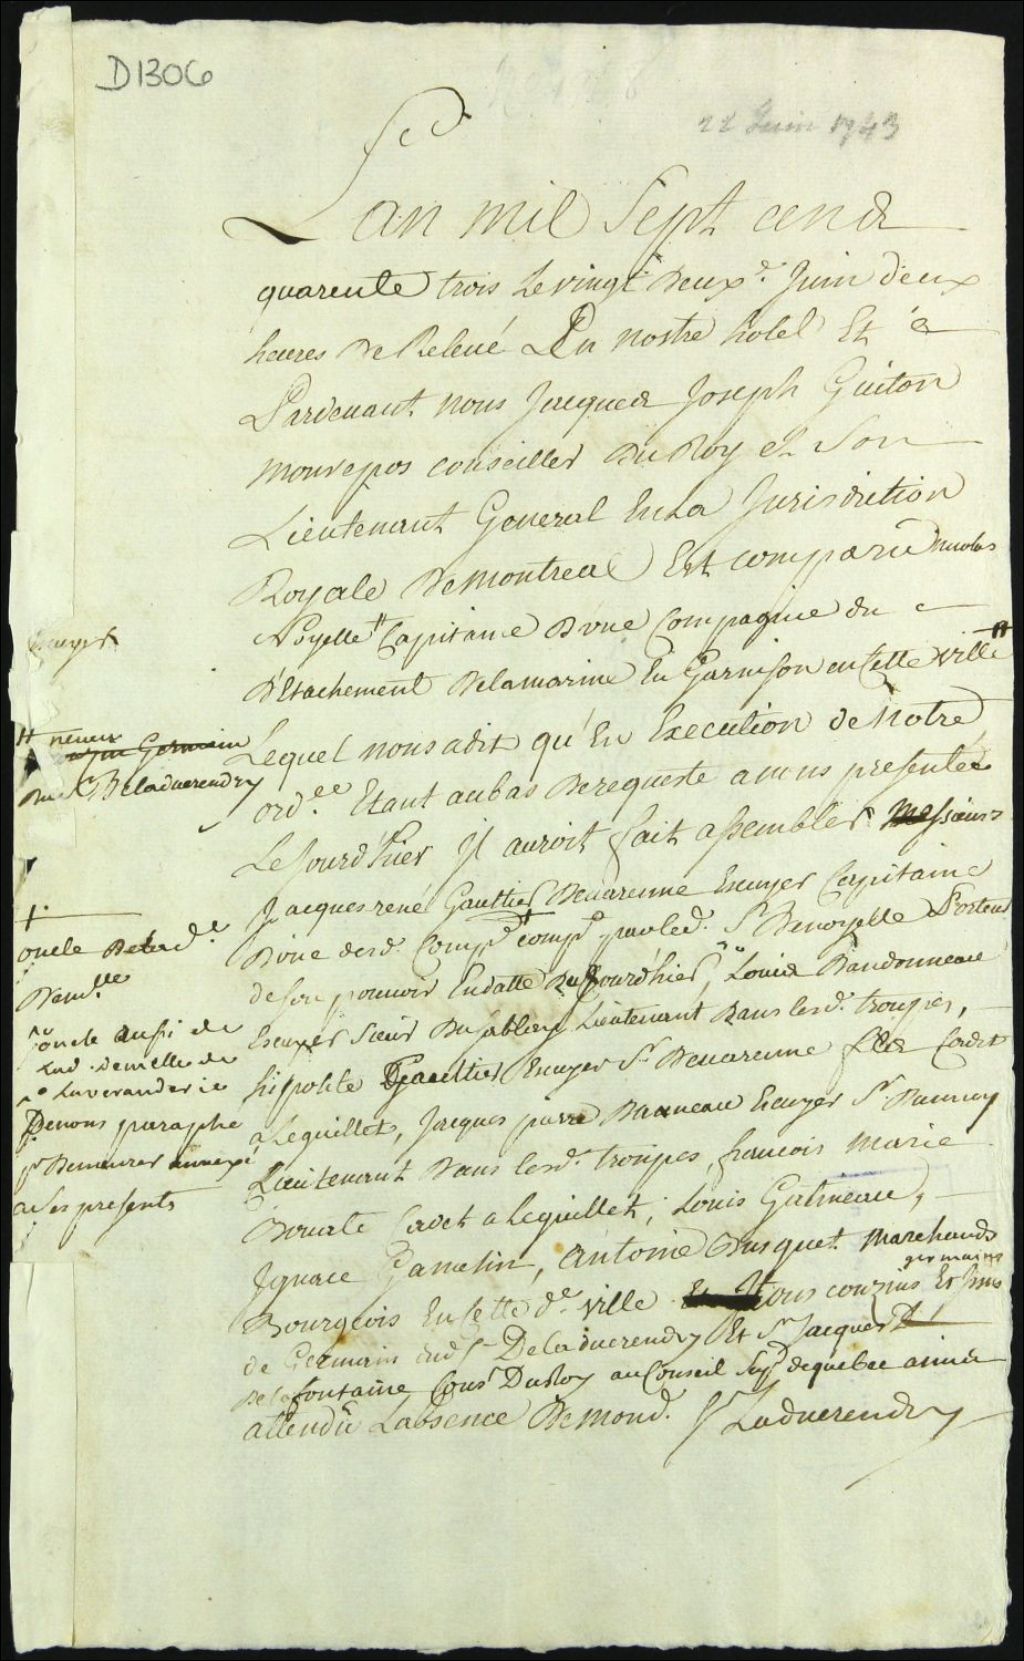 D1306
22 Juin 1743
Lan mil Sept cent
quarente trois Le vingt deuxe. Juin deux
heures de Relevé En nostre hotel Et
Pardevant nous Jacques Joseph Guiton
monrepos conseiller du Roy et Son
Lieutenant General En La Jurisdiction
Royale de Montreal Est comparu nicolas
Noyelle # Capitaine d'une Compagnie du
détachement de la marine En Garnison en cette ville #
Lequel nous a dit qu'En Execution de notre
ord.ce Etant au bas de requeste a nous presentée
Le Jourd'hier Il auroit fait assembler messieurs
Jacques rené Gaultier De varenne Escuyer Capitaine
d'une desd. Comp. + comp. par led. Sr Denoyelle Porteur
de son pouvoir En datte du Jourd'hier, Louis Dandonneau
Escuyer Sieur Du sablé Lieutenant dans lesd. troupes,
hipolite Gaultier Escuyer Sr. De varenne fils Cadet
a Leguillet, Jacques pierre Daneau Escuyer Sr. Dumuy
Lieutenant dans lesd. troupes, francois Marie
Bouate Cadet a Leguillet, Louis Gatineau,
Ignace Gamelin, Antoine Dusquet Marchands
Bourgeois En cette de. ville tous cousins germains Et Issus
de Germain dud Sr De Laduerendry Et Sr Jacques
De Lafontaine Consr. Du Roy au Conseil Supr. de quebec amis
attendu Labsence De mond. Sr Laduerendry
Escuyer
# neveu
cousin Germain
du Sr De Laduerendry
+.
oncle De lad.e
Demlle
oncle aussi de
Lad. demelle de
Laveranderie
De nous paraphé
pr Demeurer annexé
a ces presents